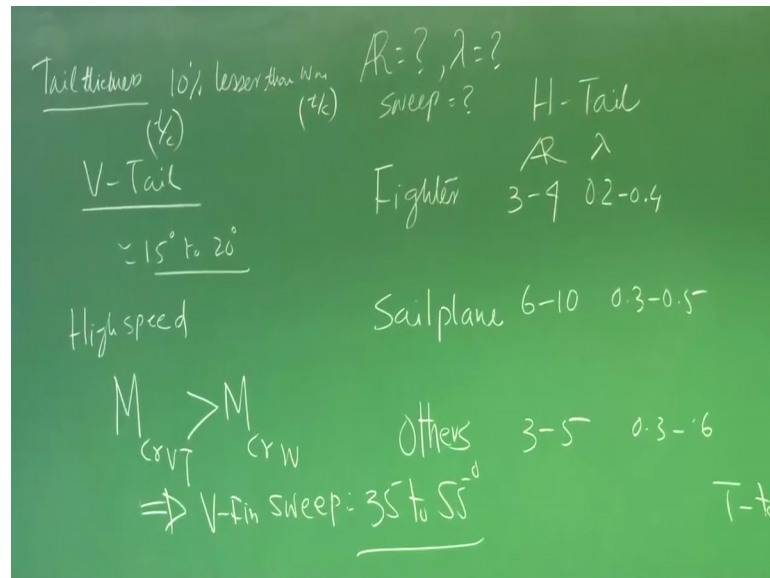 Tail thickness 10% lesser than
(t/c)
(t/c)
V-Tail
≃ 15° to 20°
High speed
M > M
cr VT cr W
⇒ V-Fin Sweep: 35 to 55°
AR = ?, λ = ?
sweep = ?
H-Tail
AR λ
Fighter 3-4 0.2-0.4
Sailplane 6-10 0.3-0.5
Others 3-5 0.3-.6